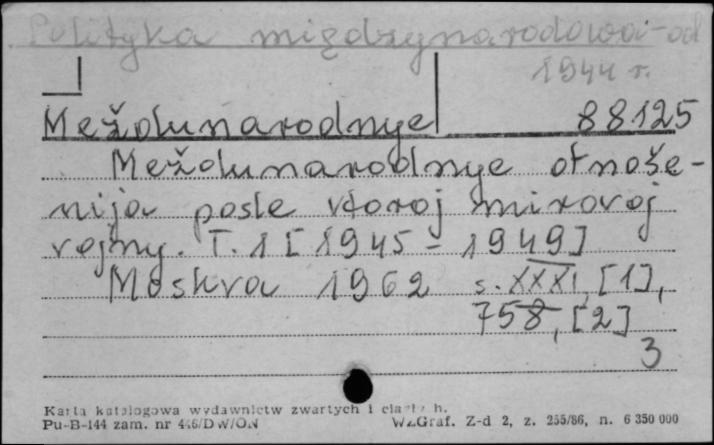 Polityka międzynarodowa - od
1944 r.
Meždunarodnye 88125
Meždunarodnye otnoše-
nija posle vtoroj mirovoj
vojny. T. 1 [1945 - 1949]
Moskva 1962 s. XXXI, [1],
758, [2]
3
Karta katalogowa wydawnictw zwartych i h.
Pu-B-144 zam. nr 446/DW/ON WZGraf. Z-d 2, z. 255/86, n. 6 350 000